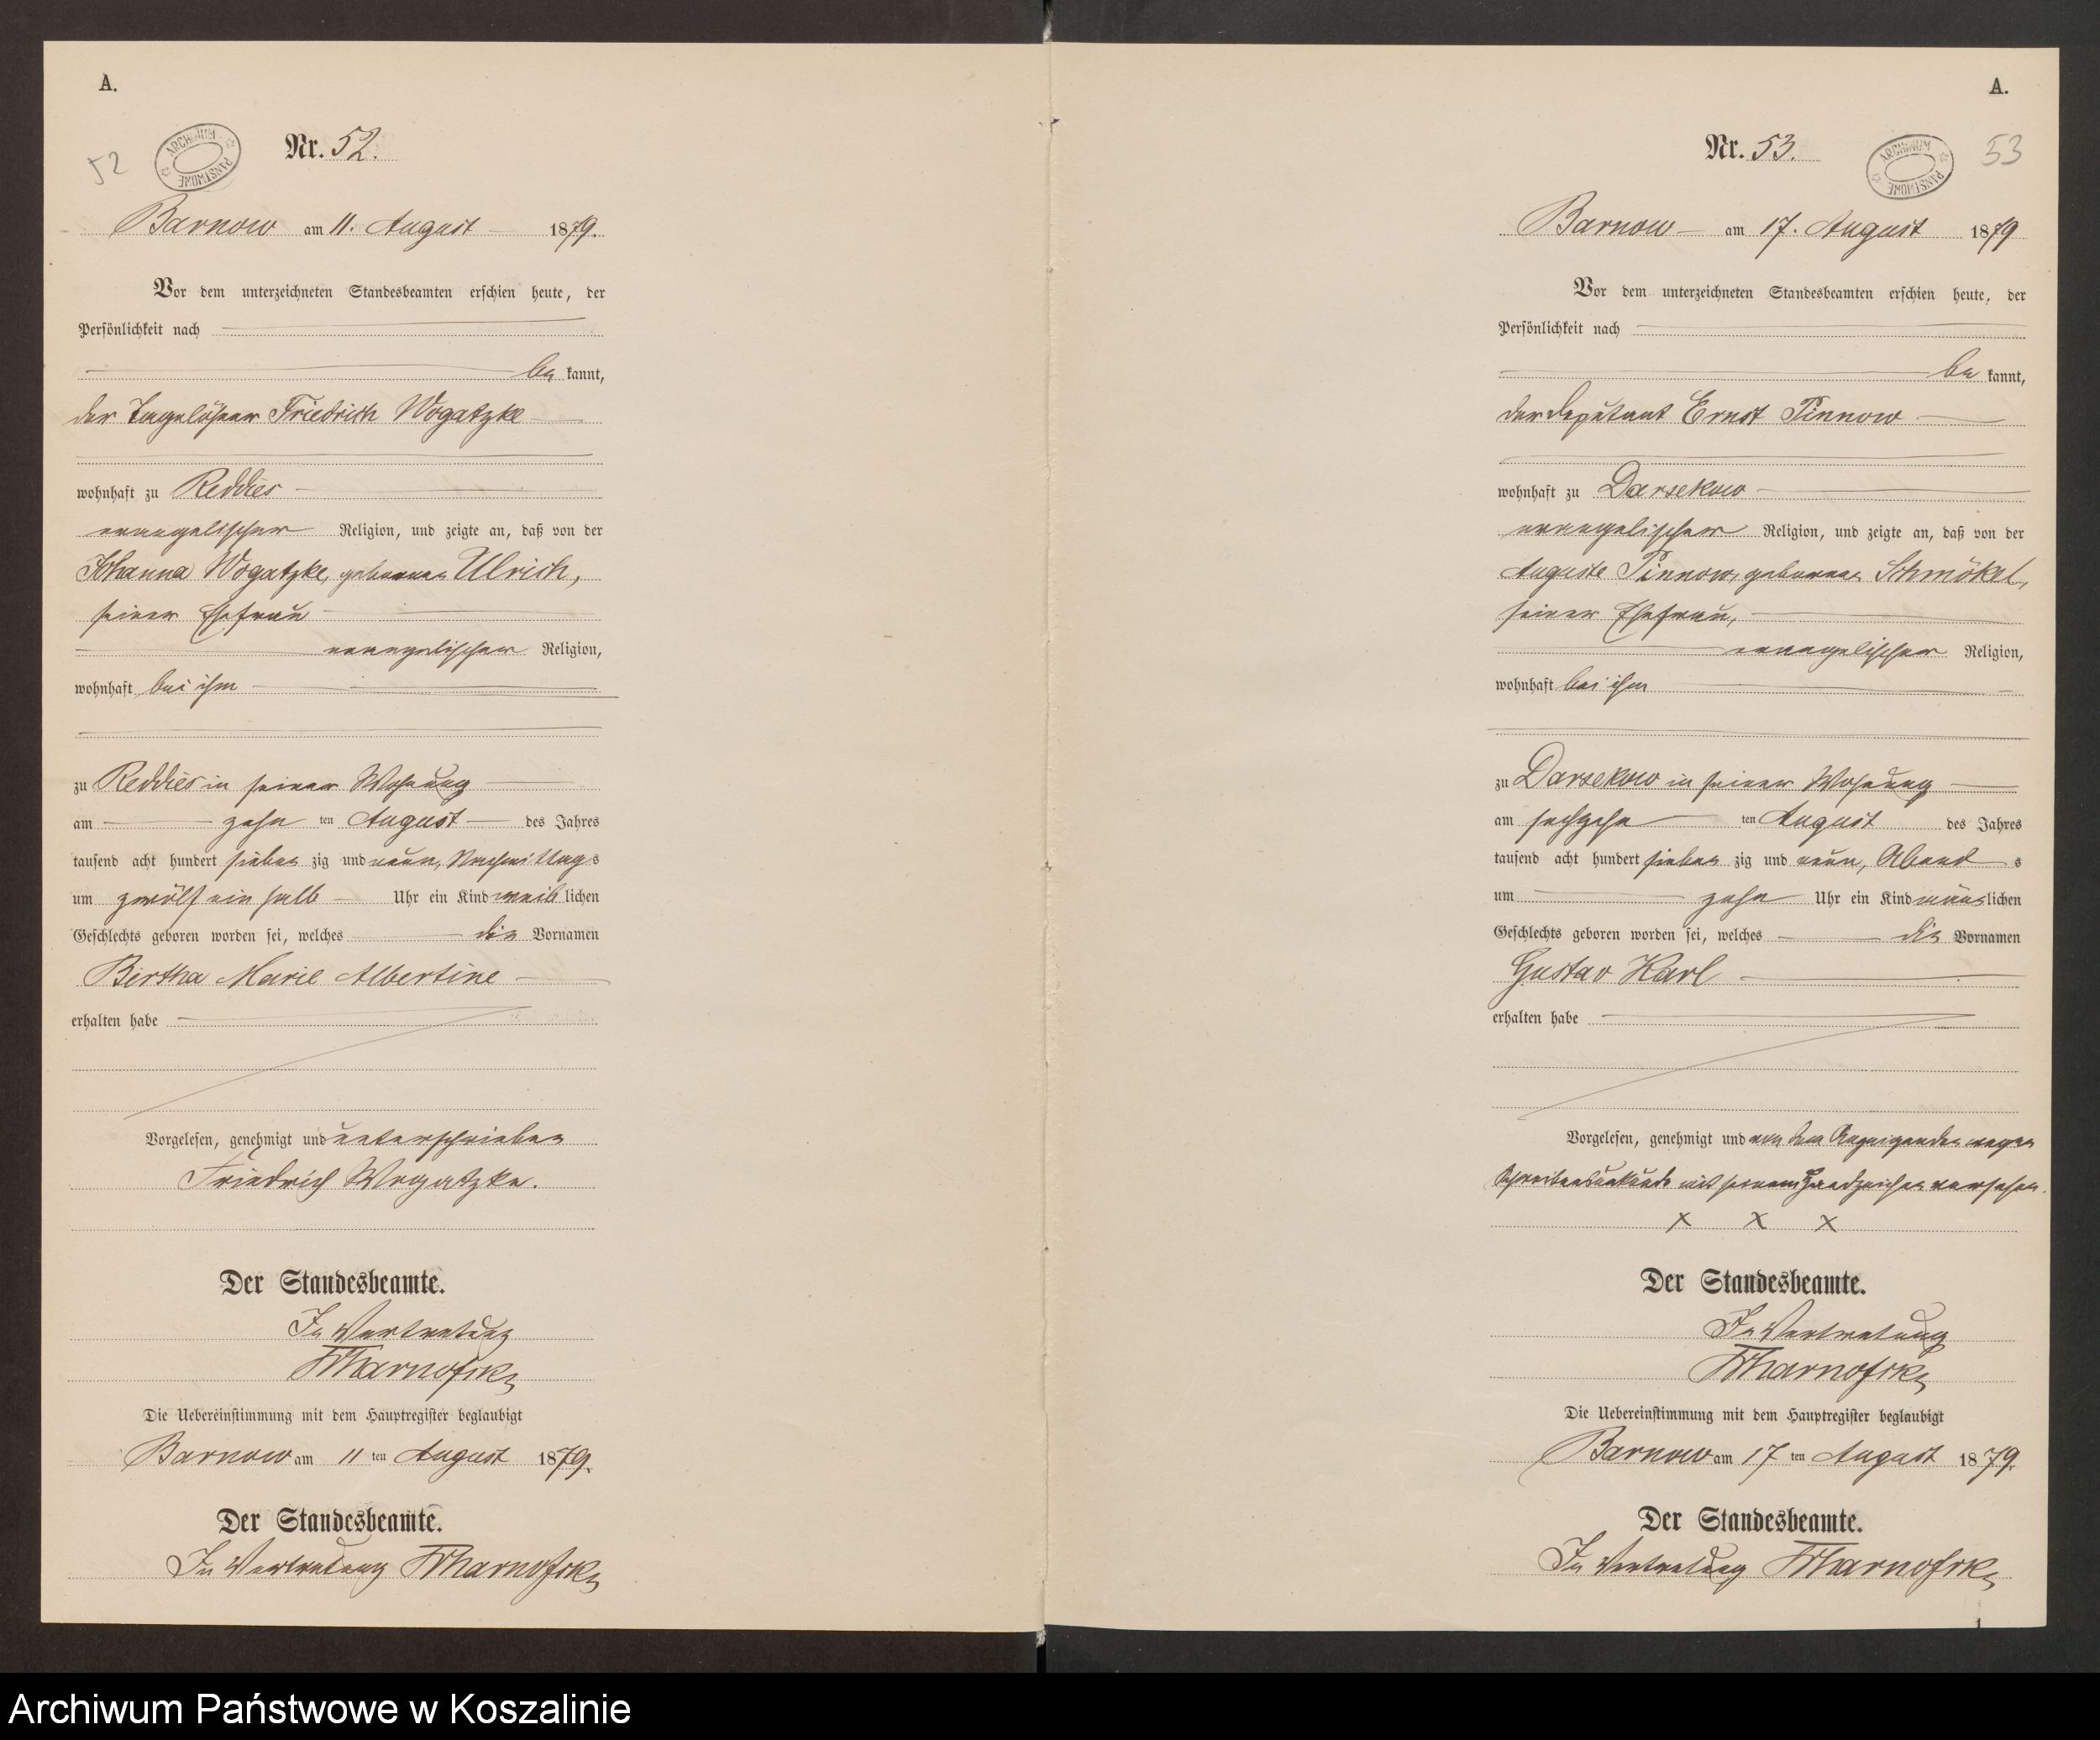 A.
52
ARCHIWUM PAŃSTWOWE
Nr. 52.
Barnow am 11. August 1879.
Vor dem unterzeichneten Standesbeamten erschien heute, der
Persönlichkeit nach
be kannt,
der Tagelöhner Friedrich Wogatzke
wohnhaft zu Reddies
evangelischer Religion, und zeigte an, daß von der
Johanna Wogatzke, geborenen Ulrich,
seiner Ehefrau
evangelischer Religion,
wohnhaft bei ihm
zu Reddies in seiner Wohnung
am zehn ten August des Jahres
tausend acht hundert sieben zig und neun, Nachmittags
um zwölf ein halb Uhr ein Kind weib lichen
Geschlechts geboren worden sei, welches die Vornamen
Bertha Marie Albertine
erhalten habe
Vorgelesen, genehmigt und unterschrieben
Friedrich Wogatzke.
Der Standesbeamte.
In Vertretung
Die Uebereinstimmung mit dem Hauptregister beglaubigt
Barnow am 11 ten August 1879.
Der Standesbeamte.
In Vertretung
A.
Nr. 53.
ARCHIWUM PAŃSTWOWE
53
Barnow am 17. August 1879
Vor dem unterzeichneten Standesbeamten erschien heute, der
Persönlichkeit nach
be kannt,
der Deputant Ernst Pinnow
wohnhaft zu Darsekow
evangelischer Religion, und zeigte an, daß von der
Auguste Pinnow, geborenen Schmökel,
seiner Ehefrau,
evangelischer Religion,
wohnhaft bei ihm
zu Darsekow in seiner Wohnung
am sechzehn ten August des Jahres
tausend acht hundert sieben zig und neun, Abend s
um zehn Uhr ein Kind männ lichen
Geschlechts geboren worden sei, welches die Vornamen
Gustav Karl
erhalten habe
Vorgelesen, genehmigt und von dem Anzeigenden wegen
Schreibensunkunde mit seinem Handzeichen versehen.
x x x
Der Standesbeamte.
In Vertretung
Die Uebereinstimmung mit dem Hauptregister beglaubigt
Barnow am 17 ten August 1879.
Der Standesbeamte.
In Vertretung
Archiwum Państwowe w Koszalinie